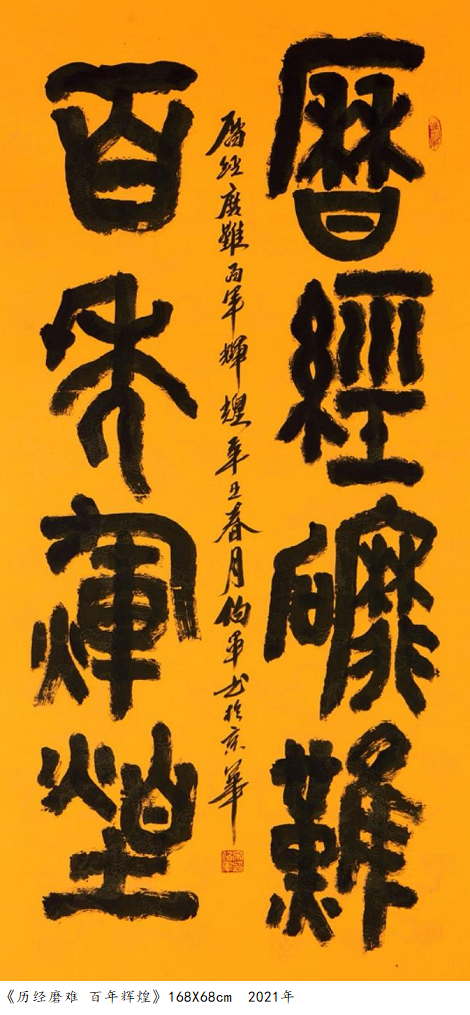 曆經䃺難
歷經磨難百年輝煌辛丑春月伯軍书於京華
百年煇煌
《历经磨难 百年辉煌》168X68cm 2021年